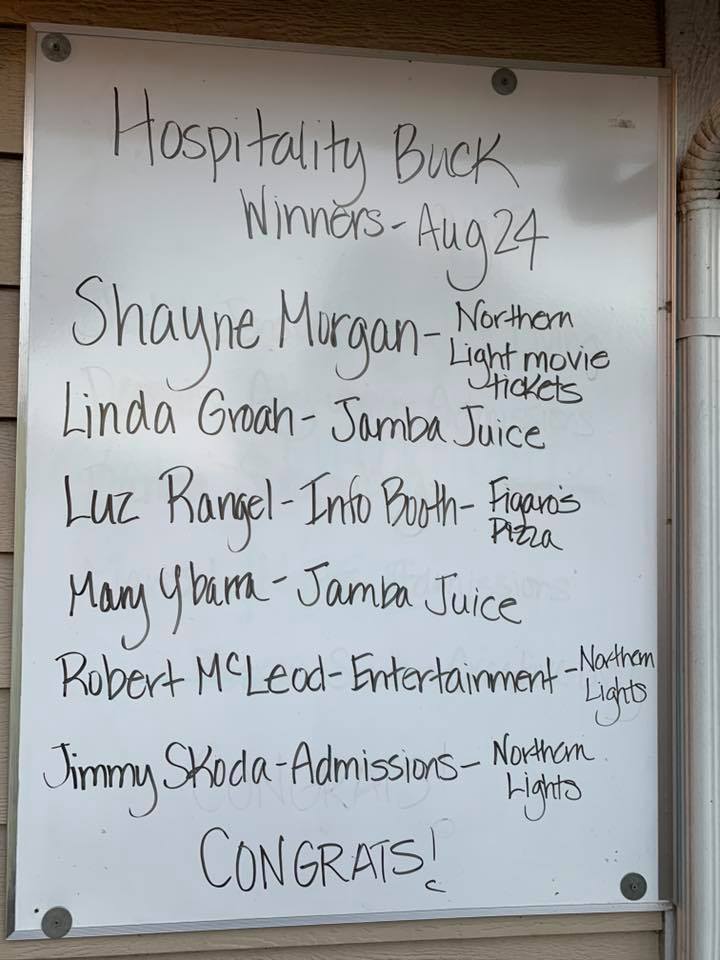 Hospitality Buck
Winners - Aug 24
Shayne Morgan - Northern
Light movie
tickets
Linda Groah - Jamba Juice
Luz Rangel - Info Booth - Figaro's
Pizza
Mary Ybarra - Jamba Juice
Robert McLeod - Entertainment - Northern
Lights
Jimmy Skoda - Admissions - Northern
Lights
CONGRATS!